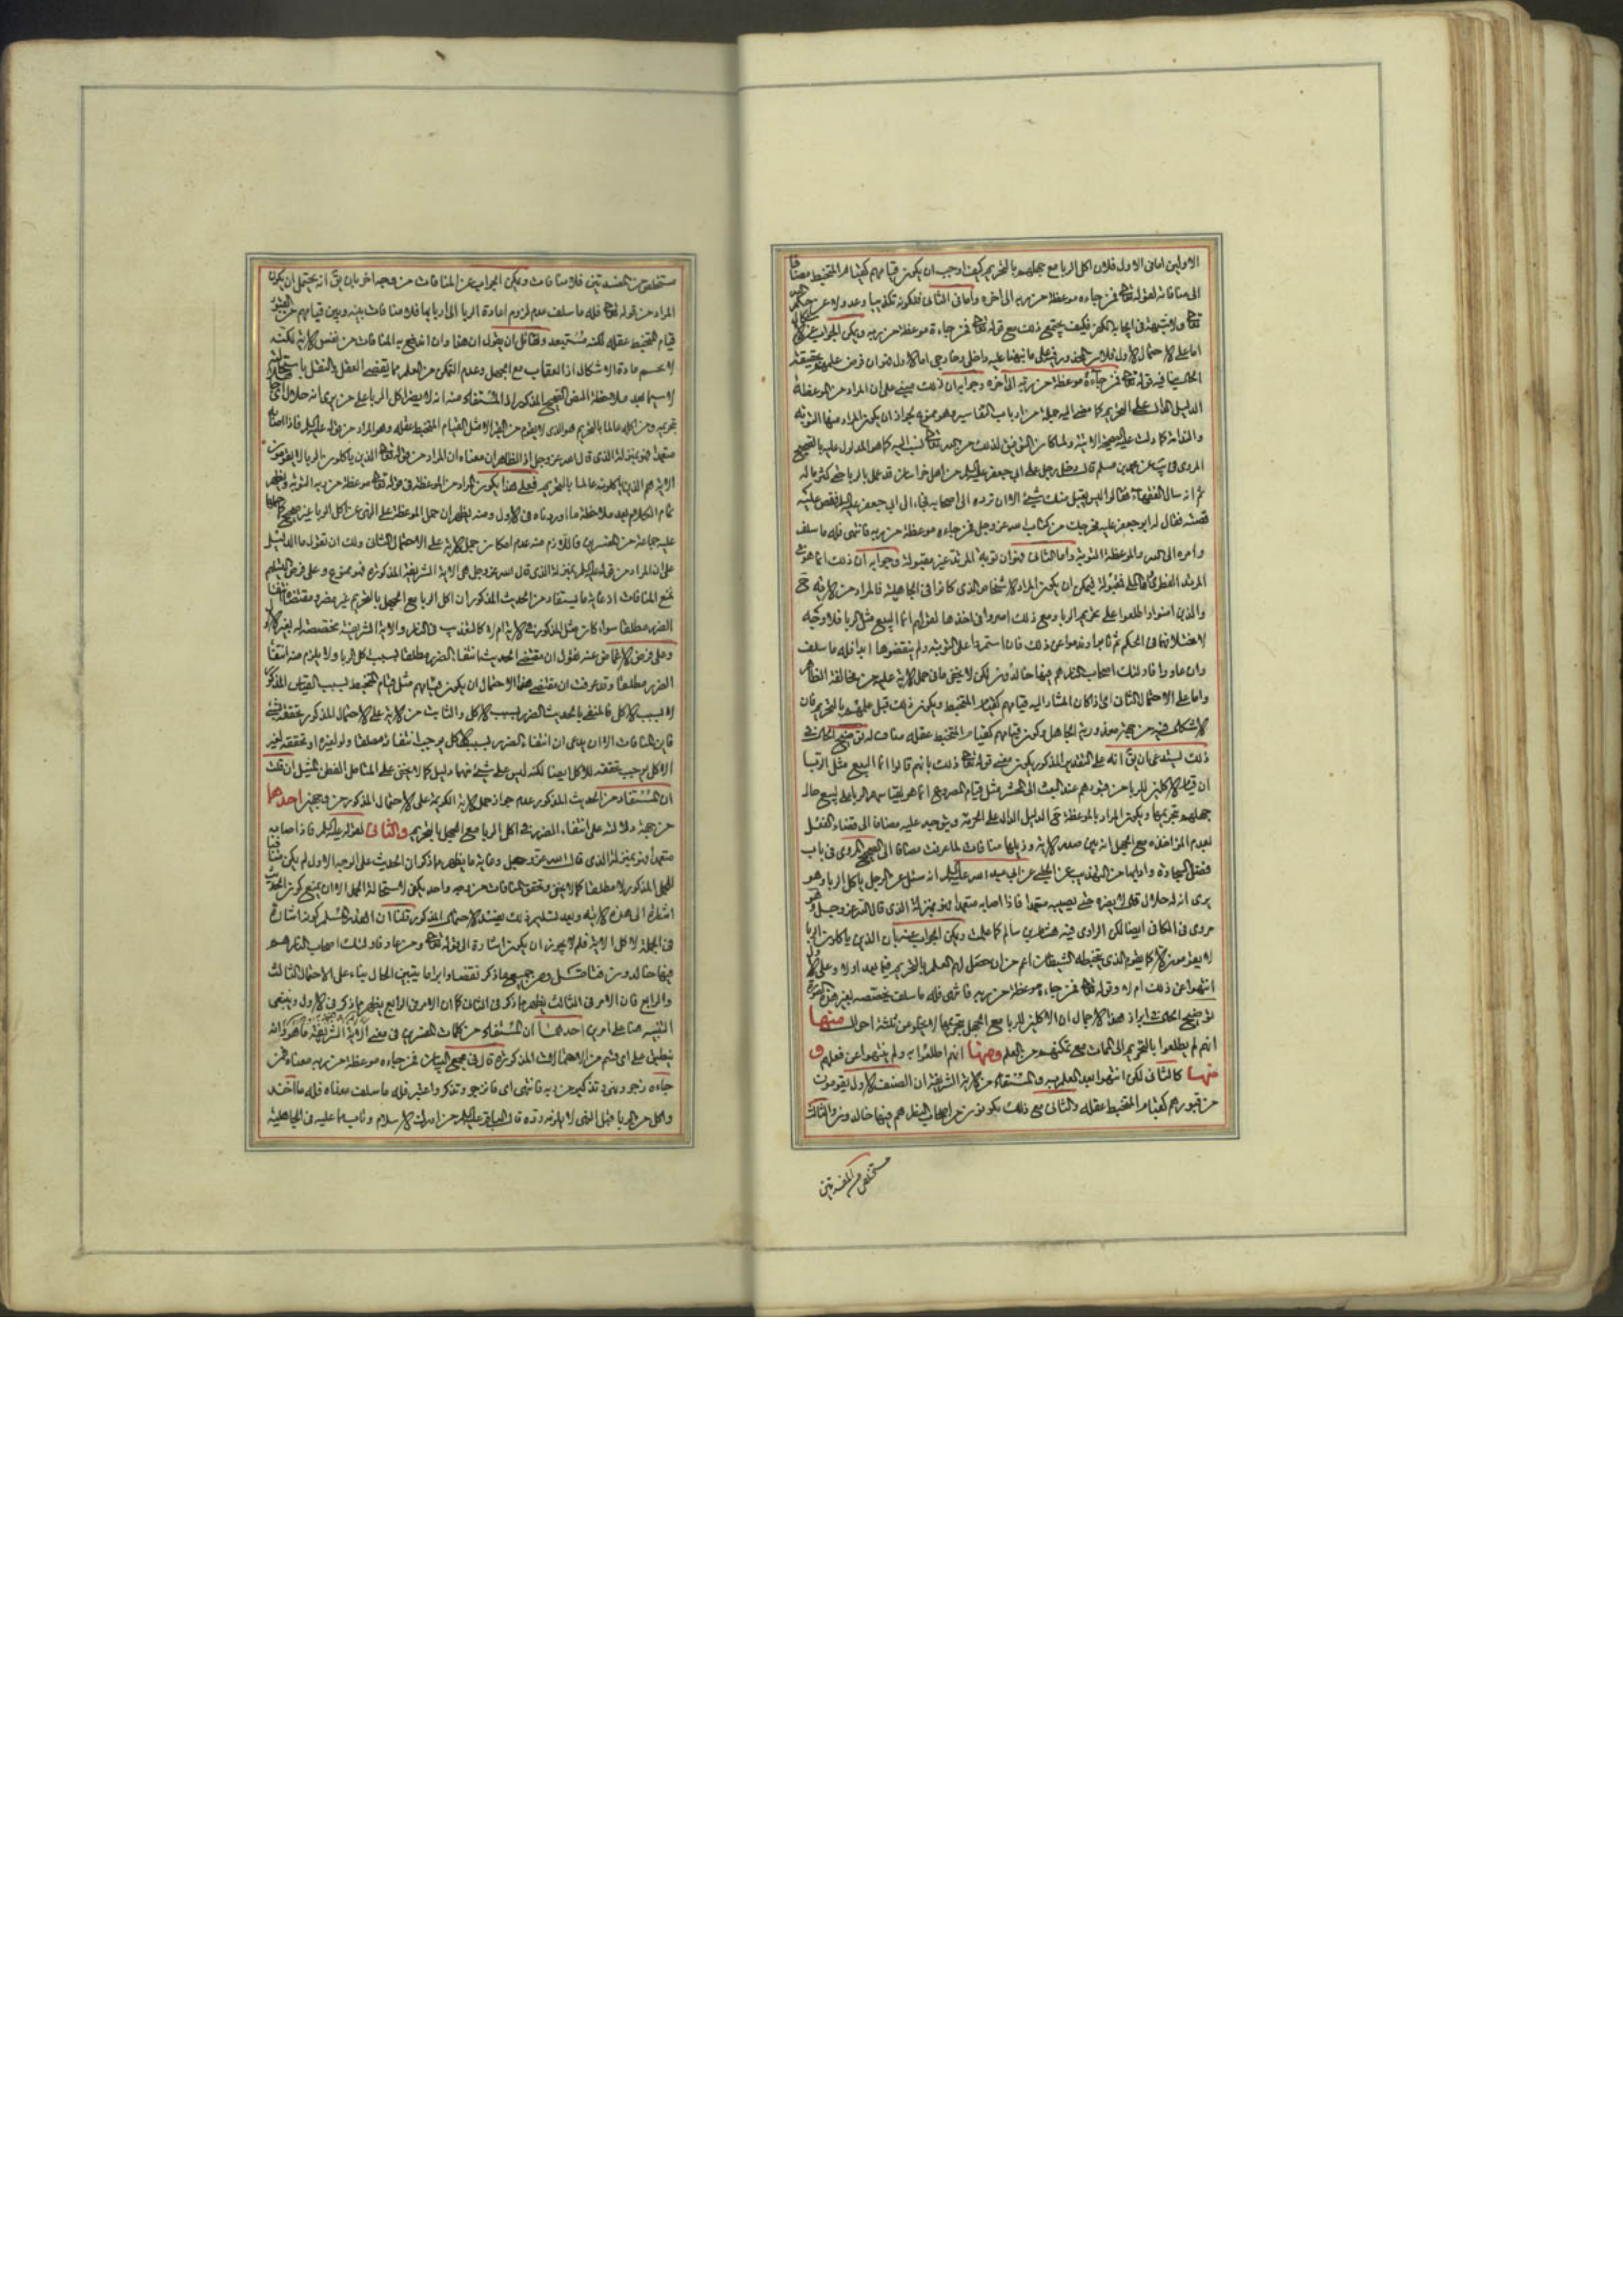 الاولين اما في الاول فلان اكل الربا مع جهله بالتحريم كيف اوجب ان يكون قيامهم كقيام المتخبط مضافا
الى منافاته لقوله تعالى فمن جاءه موعظة من ربه الى اخره واما في الثاني فلكونه تكذيبا وعدولا عن حكم الله
تعالى ولا شبهة في ايجابه الكفر فكيف يجتمع ذلك مع قوله تعالى فمن جاءه موعظة من ربه ويمكن الجواب عن الاشكال
اما على الاحتمال الاول فلان المحذور فيه على ما نبهنا عليه داخلي وخارجي اما الاول فهو ان فرض علمهم بحقيقة
الحال ينافيه قوله تعالى فمن جاءه موعظة من ربه الى اخره وجوابه ان ذلك مبني على ان المراد من الموعظة
الدليل الدال على التحريم كما مضى اليه جملة من ارباب التفاسير وهو ممنوع لجواز ان يكون المراد منها التوبة
والندامة كما دلت عليه صحيحة الاتية ولما كان التوفيق لذلك من الله تعالى نسب اليه كما هو المدلول عليه بالصحيح
المروي في يب عن محمد بن مسلم قال دخل رجل على ابي جعفر عليه السلم من اهل خراسان قد عمل بالربا حتى كثر ماله
ثم انه سال الفقهاء فقالوا ليس يقبل منك شيء الا ان ترده الى اصحابه فجاء الى ابي جعفر عليه السلم فقص عليه
قصته فقال له ابو جعفر عليه مخرجك من كتاب الله عز وجل فمن جاءه موعظة من ربه فانتهى فله ما سلف
وامره الى الله والموعظة التوبة واما الثاني فهو ان توبة المرتد غير مقبولة وجوابه ان ذلك انما هو في
المرتد الفطري واما الملي فمقبولة فيمكن ان يكون المراد الاشخاص الذي كانوا في الجاهلية فالمراد من الاية ح
والذين امنوا واطلعوا على تحريم الربا ومع ذلك اصروا في اخذها لقولهم انما البيع مثل الربا فلا وجه
لاختلافهما في الحكم ثم تابوا وندموا عن ذلك فان استمروا على التوبة ولم ينقضوها ابدا فله ما سلف
وان عادوا فاولئك اصحاب النار هم فيها خالدون لكن لا يخفى ما في حمل الاية عليه من مخالفة الظاهر
واما على الاحتمال الثاني اي اذا كان المشار اليه قيامهم كقيام المتخبط ويكون ذلك قبل علمهم بالتحريم فان
الاشكال فيه من جهة معذورية الجاهل وكون قيامهم كقيام المتخبط عقله مناف له في توضيح الحال في
ذلك يستدعي ان يق انه على التقدير المذكور يكون معنى قوله تعالى ذلك بانهم قالوا انما البيع مثل الربا
ان قيام الاكلين للربا من قبورهم عند البعث الى المحشر مثل قيام المصروع انما هو لقياسهم الربا على البيع حال
جهلهم بتحريمها ويكون المراد بالموعظة ح الدليل الدال على الحرمة ويتوجه عليه مضافا الى قضاء العقل
لعدم المؤاخذة مع الجهل انه بين صدر الاية وذيلها منافات لما عرفت مضافا الى الصحيح المروي في باب
فضل التجارة واولها من التهذيب عن الحلبي عن ابي عبد الله عليه السلم انه سئل عن الرجل ياكل الربا وهو
يرى انه له حلال قال لا يضره حتى يصيبه متعمدا فاذا اصابه متعمدا فهو بمنزلة الذي قال الله عز وجل وهو
مروي في الكافي ايضا لكن الراوي فيه هشام بن سالم كما علمت ويمكن الجواب عنه بان الذين ياكلون الربا
لا يقومون الا كما يقوم الذي يتخبطه الشيطان اعم من ان حصل لهم العلم بالتحريم فيما بعد اولا وعلى الاول
انتهوا عن ذلك ام لا وقوله تعالى فمن جاءه موعظة من ربه فانتهى فله ما سلف يخصصه لغير هذه الصورة
توضيح الحال انبراز هذا الاجمال ان الاكلين للربا مع الجهل بتحريمها لا يخلو من ثلثة احوال منها
انهم لم يطلعوا بالتحريم الى الممات مع تمكنهم من العلم ومنها انهم اطلعوا به ولم ينتهوا عن فعلهم و
منها كالثاني لكن انتهوا بعد العلم به والمستفاد من الاية الشريفة ان الصنف الاول يقومون
من قبورهم كقيام المتخبط عقله والثاني مع ذلك يكونون من اصحاب النار هم فيها خالدون والثالث
مستخلص من المفسدتين
مستخلص من المفسدتين فلا منافات ويمكن الجواب عن المنافات من وجه اخر بان يق انه يحتمل ان يكون
المراد من قوله تعالى فله ما سلف عدم لزوم اعادة الربا الى اربابها فلا منافات بينه وبين قيامهم من القبور
قيام المتخبط عقله لكنه مستبعد ولقائل ان يقول ان هذا وان اندفع به المنافات من نفس الاية لكنه
لا يحسم مادة الاشكال اذ العقاب مع الجهل وعدم التمكن من العلم مما يقضى العقل والنقل باستحالته
لا سيما بعد ملاحظة النص الصحيح المذكور اذ المستفاد منه انه لا يضر اكل الربا على من يرى انه حلال اي
بتحريمه ومن اكله عالما بالتحريم هو الذي لا يقوم من القبر الا مثل القيام المتخبط عقله وهو المراد من قوله عليه السلم فاذا اصابه
متعمدا فهو بمنزلة الذي قال الله عز وجل اذ الظاهر ان معناه ان المراد من قوله تعالى الذين ياكلون الربا لا يقومون
الاية هم الذين ياكلونه عالما بالتحريم فعلى هذا يكون المراد من الموعظة في قوله تعالى موعظة من ربه التوبة ويظهر
تمام الكلام بعد ملاحظة ما اوردناه في الاول ومنه يظهر ان حمل الموعظة على النهي عن اكل الربا غير صحيح كما حملها
عليه جماعة من المفسرين فاللازم منه عدم امكان حمل الاية على الاحتمال الثاني ولك ان تقول ما الدليل
على ان المراد من قوله عليه السلم بمنزلة الذي قال الله عز وجل هي الاية الشريفة المذكورة فهو ممنوع وعلى فرض التسليم
نمنع المنافات اذ غاية ما يستفاد من الحديث المذكور ان اكل الربا مع الجهل بالتحريم غير مضر ومقتضاه انتفاء
الضرر مطلقا سواء كان مثل المذكور في الاية ام لا كالتعذيب في النار والاية الشريفة مخصصة له بغير الاول
وعلى فرض الاغماض عنه نقول ان مقتضى الحديث انتفاء الضرر مطلقا بسبب اكل الربا ولا يلزم منه انتفاء
الضرر مطلقا وقد عرفت ان مقتضى هذا الاحتمال ان يكون قيامهم مثل قيام المتخبط بسبب القياس المذكور
لا بسبب الاكل فالمنفي بالحديث الضرر بسبب الاكل والثابت من الاية على الاحتمال المذكور تحققه لشيء
فاين المنافات الا ان يدعى ان انتفاء الضرر بسبب الاكل يوجب انتفائه مطلقا ولو لغيره او تحققه لغير
الاكل يوجب تحققه للاكل ايضا لكنه ليس على شيء منهما دليل كما لا يخفى على المتامل الفطن النبيل ان قلت
ان المستفاد من الحديث المذكور عدم جواز حمل الاية الكريمة على الاحتمال المذكور من وجهين احدهما
من جهة دلالته على انتفاء الضرر في اكل الربا مع الجهل بالتحريم والثاني لقوله عليه السلم فاذا اصابه
متعمدا فهو بمنزلة الذي قال الله عز وجل وغاية ما يظهر مما ذكر ان الحديث على الوجه الاول لم يكن منافيا
للحمل المذكور لا مطلقا كما لا يخفى وتحقق المنافات من وجه واحد يكفي لاستحالة الحمل الا ان يمنع كون الحديث
اشارة الى هذه الاية وبعد تسليم ذلك يعتضد الاحتمال المذكور قلنا ان القدر المسلم كونه اشارة
في الجملة لا كل الاية فلم لا يجوز ان يكون اشارة الى قوله تعالى ومن عاد فاولئك اصحاب النار هم
فيها خالدون فتامل ومن جميع ما ذكر نقضا وابراما يتبين الحال بناء على الاحتمال الثالث
والرابع فان الامر في الثالث يظهر مما ذكر في الثاني كما ان الامر في الرابع يظهر مما ذكر في الاول وينبغي
التنبيه هنا على امرين احدهما ان المستفاد من كلمات المفسرين في معنى الاية الشريفة ما هو وانه
ينطبق على اي قسم من الاحتمالات المذكورة قال في مجمع البيان فمن جاءه موعظة من ربه معناه فمن
جاءه زجر ونهي وتذكير من ربه فانتهى اي فانزجر وتذكر واعتبر فله ما سلف معناه فله ما اخذ
واكل من الربا قبل النهي لا يلزمه رده قال الباقر عليه السلم من ادرك الاسلام وتاب مما عليه في الجاهلية